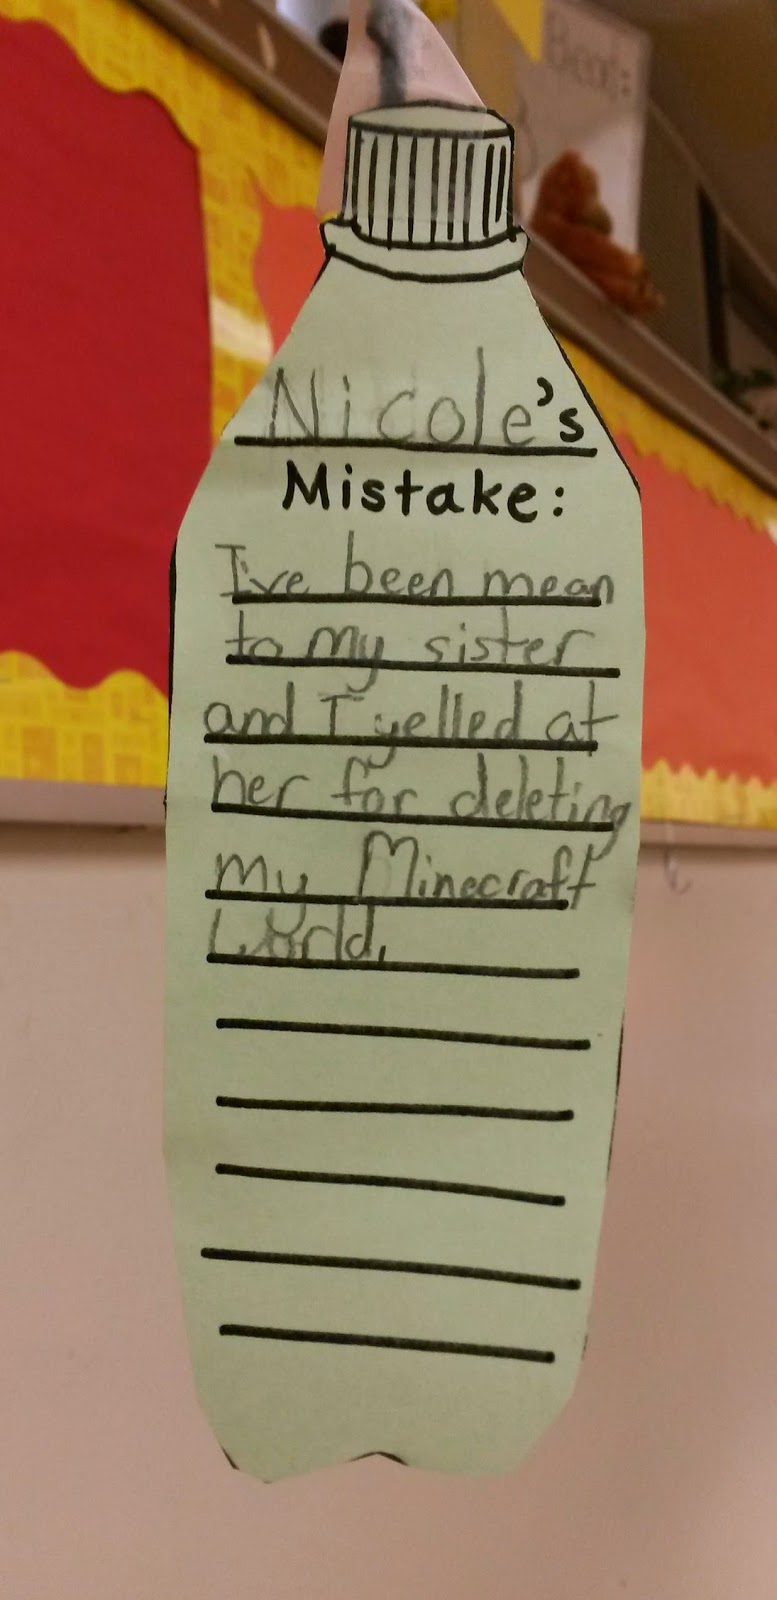 Book:
Nicole's
Mistake:
I've been mean
to my sister
and I yelled at
her for deleting
my Minecraft
World.